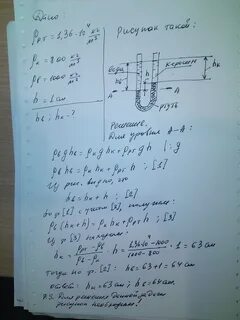 Дано:
ρрт = 1,36·10⁴ кг/м³
ρк = 800 кг/м³
ρв = 1000 кг/м³
h = 1 см
hв; hк - ?
Рисунок такой:
вода
керосин
hв
h
hк
A
A
ртуть
Решение.
Для уровня A-A:
ρв g hв = ρк g hк + ρрт g h | : g
ρв hв = ρк hк + ρрт h ; [1]
Из рис. видно, что
hв = hк + h ; [2]
из [1] с учётом [2] получаем:
ρв (hк + h) = ρк hк + ρрт h ; [3]
Из [3] находим:
hк = (ρрт - ρв)/(ρв - ρк) · h = (1,36·10⁴ - 1000)/(1000 - 800) · 1 = 63 см
тогда из [2]: hв = 63 + 1 = 64 см
Ответ: hк = 63 см; hв = 64 см.
P.S. Для решения данной задачи
рисунок необходим!